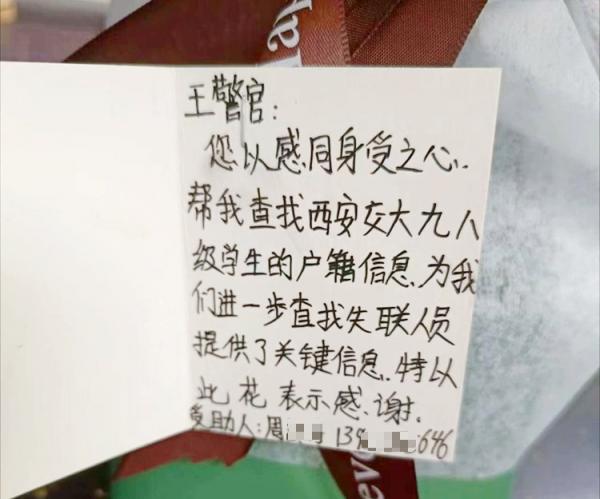 王警官：
您以感同身受之心，
帮我查找西安交大九八
级学生的户籍信息，为我
们进一步查找失联人员
提供了关键信息，特以
此花表示感谢．
受助人：周 13 646